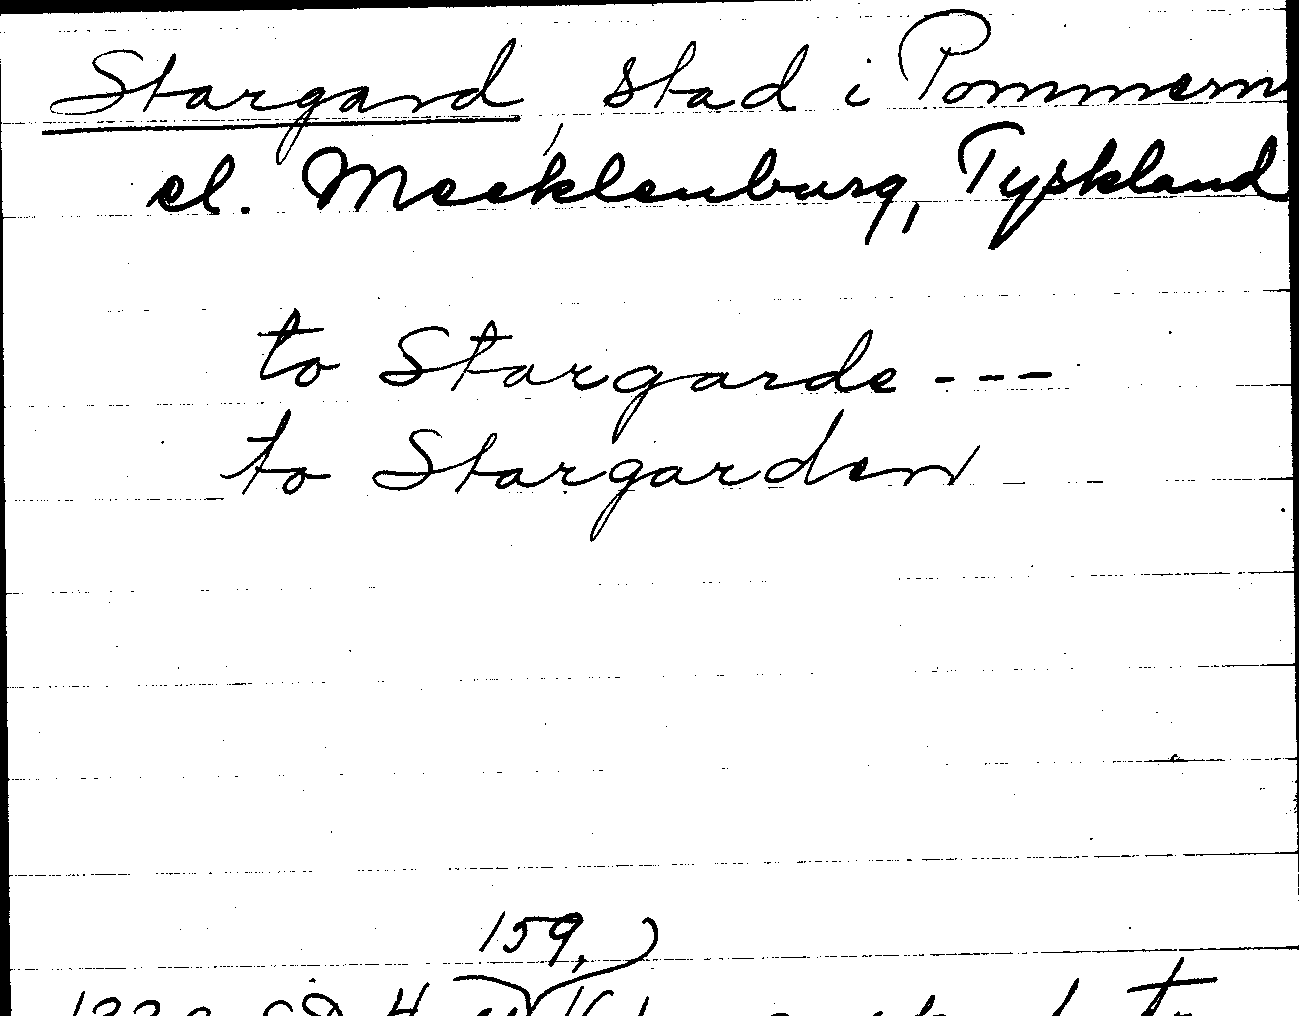 Stargard, stad i Pommern
el. Mecklenburg, Tyskland
to Stargarde ---
to Stargarden
159,